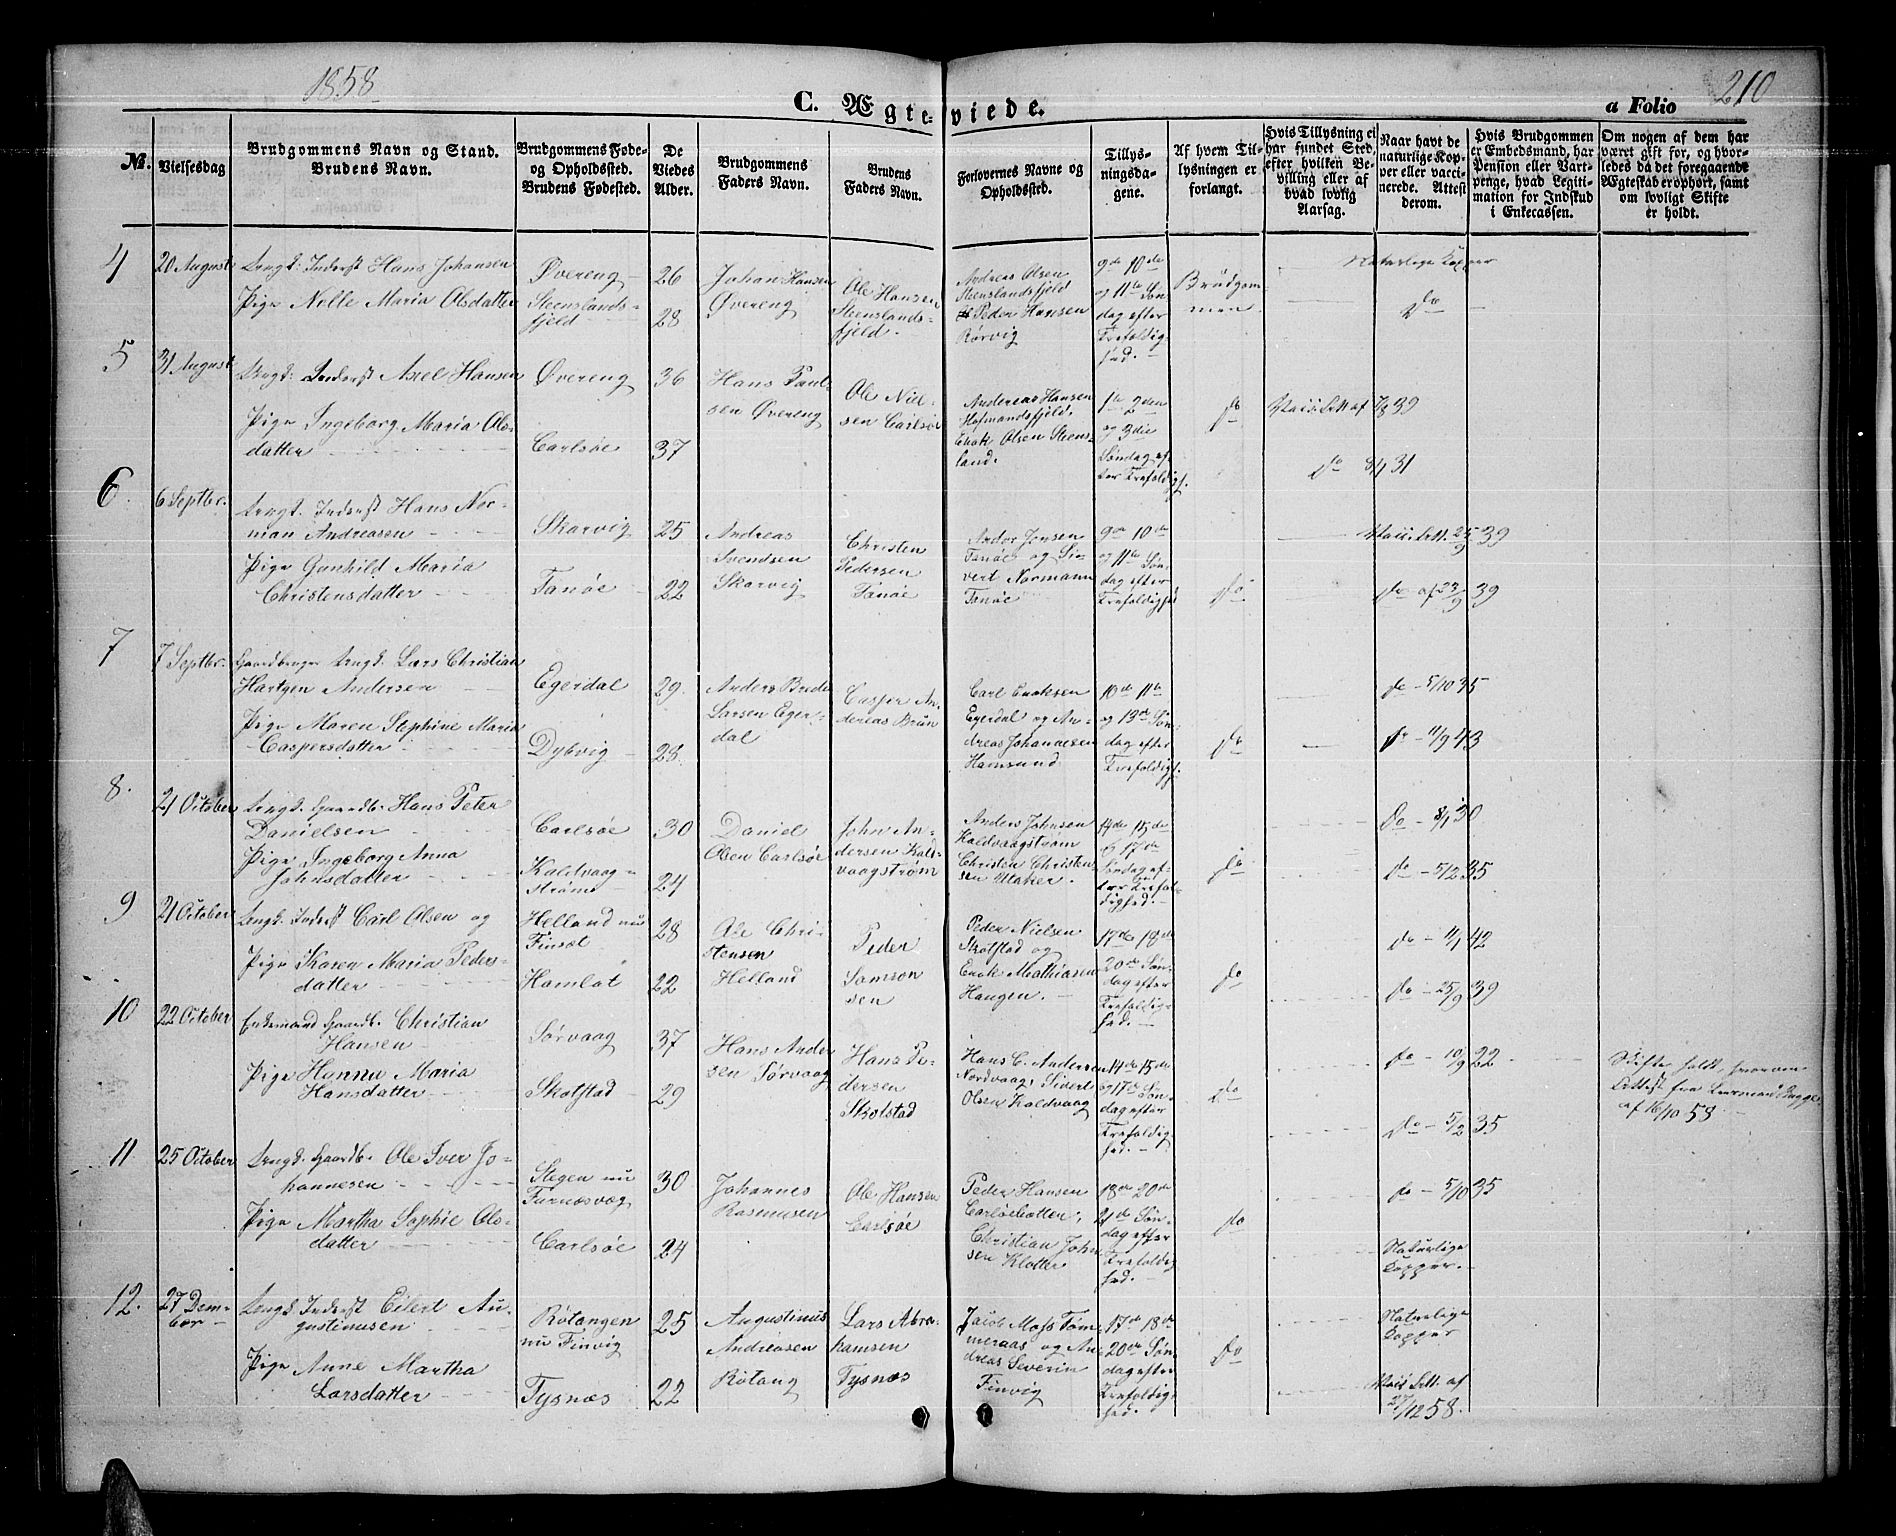 1858
210
C. Ægteviede.
a Folio
No.
Vielsesdag
Brudgommens Navn og Stand.
Brudens Navn.
Brudgommens Føde-
og Opholdssted.
Brudens Fødested.
De
Viedes
Alder.
Brudgommens
Faders Navn.
Brudens
Faders Navn.
Forlovernes Navne og
Opholdssted.
Tillys-
ningsda-
gene.
Af hvem Til-
lysningen er
forlangt.
Hvis Tillysning ei
har fundet Sted,
efter hvilken Be-
villing eller af
hvad lovlig
Aarsag.
Naar havt de
naturlige Kop-
per eller vacci-
nerede. Attest
derom.
Hvis Brudgommen
er Embedsmand, har
Pension eller Vart-
penge, hvad Legiti-
mation for Indskud
i Enkecassen.
Om nogen af dem har
været gift før, og hvor-
ledes da det foregaaende
Ægteskab er ophørt, samt
om lovligt Skifte
er holdt.
4
20 August
Ungk. Inderst Hans Johansen
Pige Nille Maria Olsdatter
Øvereng
Steenslands-
fjeld
26
28
Johan Hansen
Øvereng
Ole Hansen
Steenslands-
fjeld.
Andreas Olsen
Steenslandsfjeld
Peder Hansen
Rørvig
9de 10de
og 11te Søn
dag efter
Trefoldig
hed.
Brudgom
men.
Naturlige Kopper
Do
5
31 August
Ungk. Inderst Axel Hansen
Pige Ingeborg Maria Ols-
datter
Øvereng
Carlsøe
36
37
Hans Paul-
sen Øvereng
Ole Niel-
sen Carlsøe
Andreas Hansen
Hofmandsfjeld.
Enok Olsen Steens-
land.
1te 2den
og 3die
Søndag ef-
ter Trefoldigh.
Do
Do 8/1 31
6
6 Septbr.
Ungk. Inderst Hans Nor-
man Andreasen
Pige Gunhild Maria
Christensdatter
Skarvig
Tanøe
25
22
Andreas
Svendsen
Skarvig
Christen
Pedersen
Tanøe
Andor Jensen
Tanøe og Si-
vert Normann
Tanøe
9de 10de
og 11te Søn-
dag efter
Trefoldighed
Do
25/9 39
Do af 23/9 39
7
7 Septbr.
Gaardbruger Ungk. Lars Christian
Hartgen Andersen
Pige Maren Stephine Maria
Caspersdatter
Egerdal
Dybvig
29.
28.
Anders Brede
Larsen Eger-
dal
Casper An-
dreas Brun
Carl Enoksen
Egerdal og An-
dreas Johannesen
Hamsund
10de 11te
og 13de Søn
dag efter
Trefoldigh.
Do
Do - 5/10 35
Do - 11/9 43
8.
21 October
Ungk. Gaardb. Hans Peter
Danielsen
Pige Ingeborg Anna
Johnsdatter
Carlsøe
Kaldvaag-
strøm
30
24
Daniel
Olsen Carlsøe
John An-
dersen Kald-
vaagstrøm
Anders Johnsen
Kaldvaagstrøm
Christen Christen-
sen Utaker.
14de 15de
& 17de
Søndag ef-
ter Trefol-
dighed.
Do
Do - 8/1 30
Do - 5/2 35
9
21 October
Ungk. Inderst Carl Olsen og
Pige Karen Maria Peders-
datter
Helland nu
Finsæt
Hamlot
28
22
Ole Chri-
stensen
Helland
Peder
Samson
sen
Peder Nielsen
Skotstad og
Enok Mathiasen
Haugen.
17de 18de
20de Søn-
dag efter
Trefoldig-
hed.
Do
Do - 11/1 42
Do - 25/9 39
10
22 October
Enkemand Gaardb. Christian
Hansen
Pige Hanna Maria
Hansdatter
Sørvaag
Skotstad
37
29
Hans Ander
sen Sørvaag
Hans Pe-
dersen
Skotstad
Hans C. Andersen
Nordvaag, Sivert
Olsen Kaldvaag
14de 15de
og 17de Søn-
dag efter
Trefoldig
hed.
Do
Do - 10/9 22
Do - 5/2 35
Skifte holdt, hvorom
Attest fra Lensmand Bugge
af 16/10 58
11
25 October
Ungk. Gaardb. Ole Iver Jo-
hannesen
Pige Martha Sophie Ols-
datter
Stegen nu
Furnæsvæg
Carlsøe
30
24
Johannes
Rasmusen
Ole Hansen
Carlsøe
Peder Hansen
Carlsøebotten,
Christian John-
sen Klotter
18de 20de
21de Søn-
dag efter
Trefoldig
hed.
Do
Do - 5/10 35
Naturlige
Kopper.
12.
27 Dcem-
ber
Ungk. Inderst Eilert Au-
gustinusen
Pige Anne Martha
Larsdatter
Røtangen
nu Finvig
Tysnæs
25
22
Augustinus
Andreasen
Røtang
Lars Abra-
hamsen
Tysnæs
Jacob Moss Tøm-
meraas og An-
dreas Severin
Finvig
17de 18de
20de Søn-
dag efter
Trefoldig-
hed.
Do
Naturlige
Kopper
27/12 58.